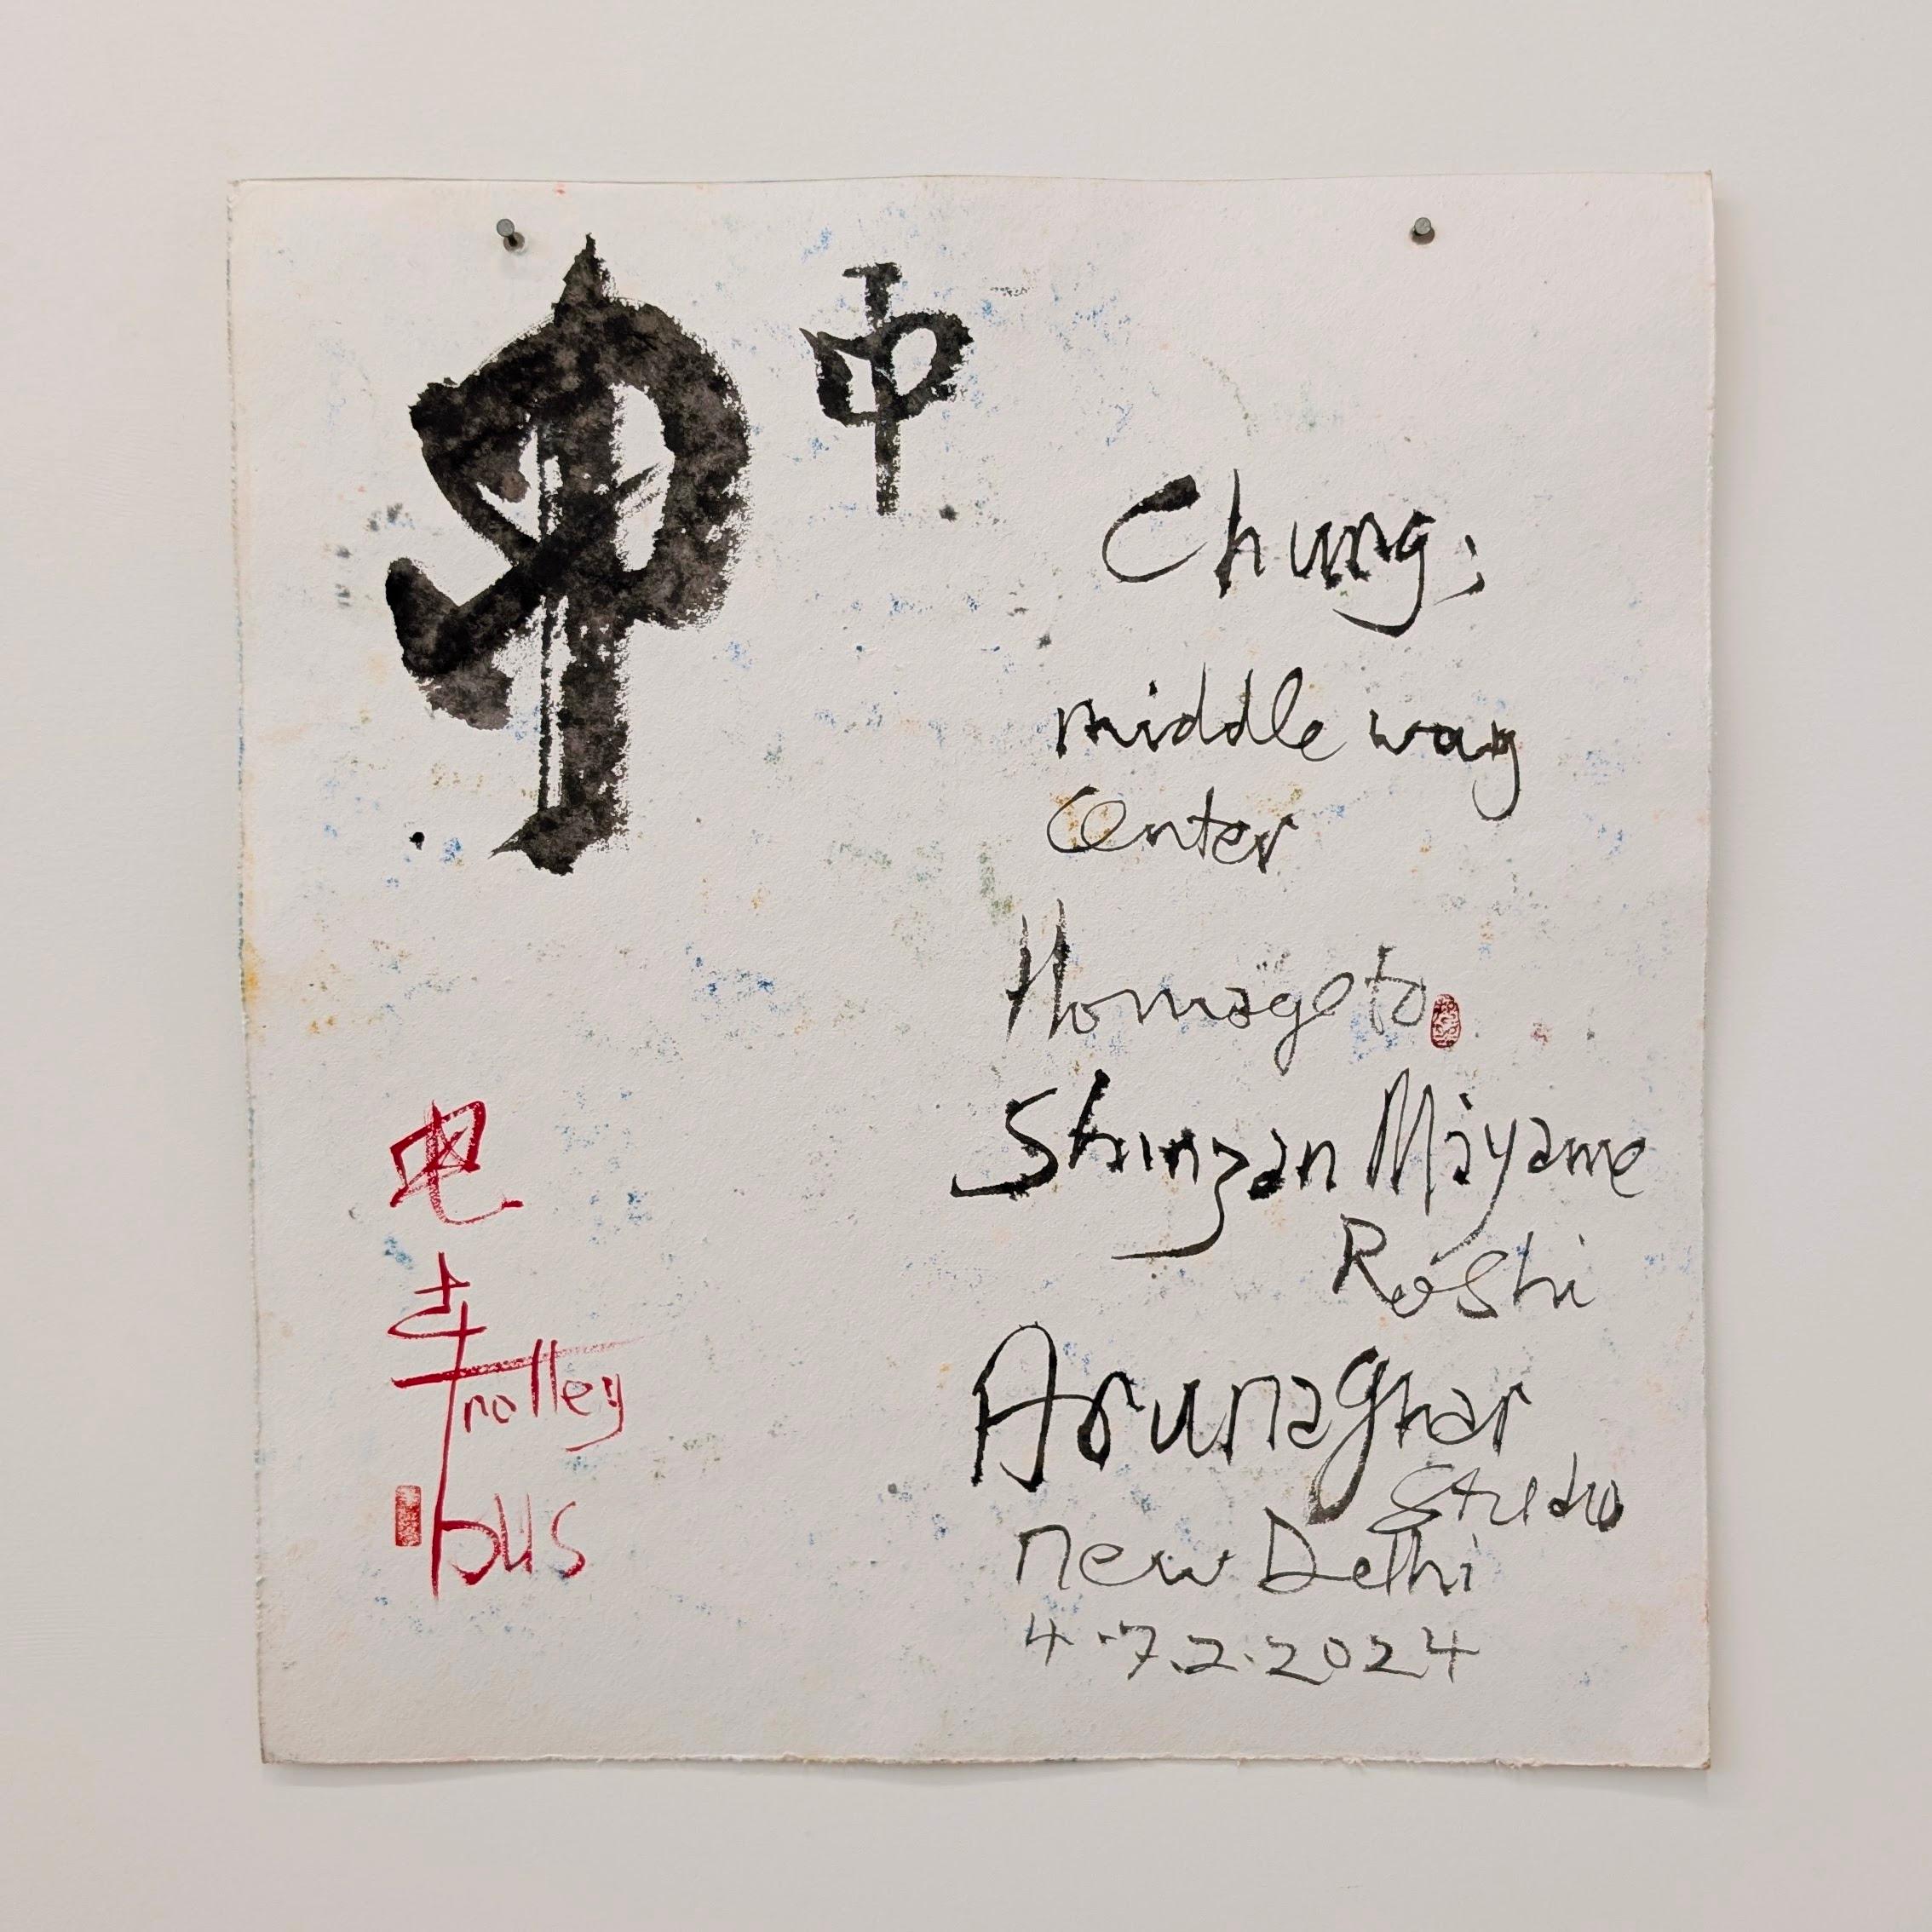 中 中
Chung:
middle way
Center
Homage to
Shinzan Miyamae
Roshi
Arunaghar
Studio
new Delhi
4.7.2.2024
电
车
Trolley
bus